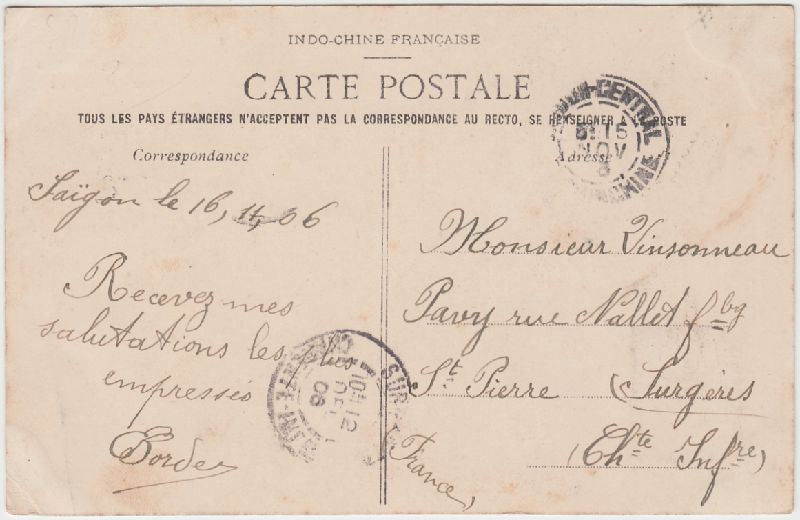 INDO-CHINE FRANÇAISE
CARTE POSTALE
TOUS LES PAYS ÉTRANGERS N'ACCEPTENT PAS LA CORRESPONDANCE AU RECTO, SE RENSEIGNER À LA POSTE
Correspondance
Saïgon le 16, 11, 06
Recevez mes
salutations les
plus
empressés
Borde
Adresse
Monsieur Vinsonneau
Pavy rue Nallet fbg
St. Pierre (Surgères
(Chte Infre)
France)
CENTRAL
15
NOV
CHINE
SURG
10E 12
DEC
06
INFRE